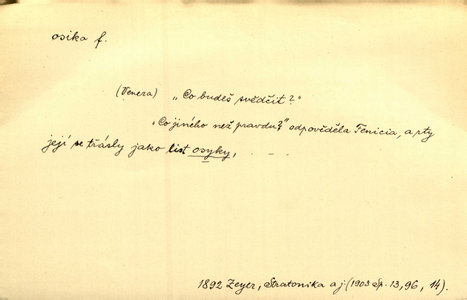 osika f.
(Venera) „Co budeš svědčit?"
„Co jiného než pravdu?" odpověděla Fenicia, a rty
její se třásly jako list osyky, . – –
1892 Zeyer, Stratonika a j. (1903 Sp. 13, 96, 14).